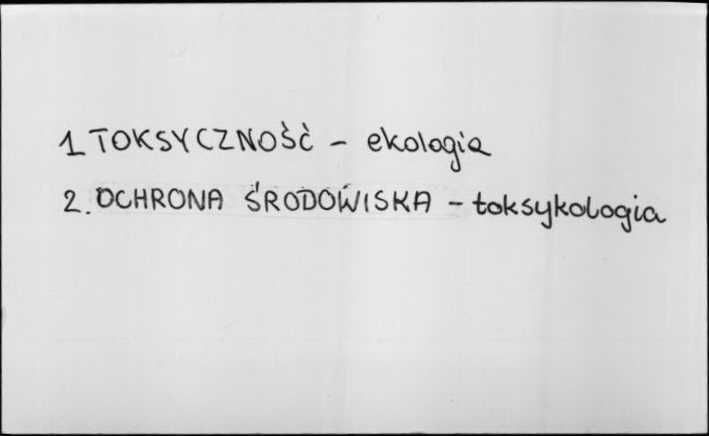 1 TOKSYCZNOŚĆ - ekologia
2. OCHRONA ŚRODOWISKA - toksykologia